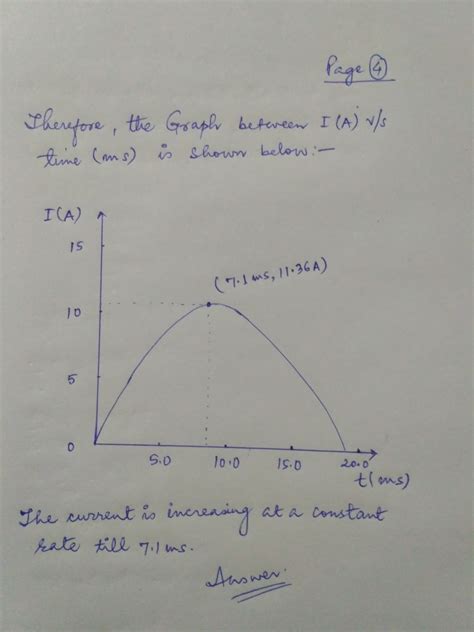 Page 4
Therefore, the Graph between I(A) v/s
time (ms) is shown below:-
I(A)
15
(7.1 ms, 11.36A)
10
5
0
5.0 10.0 15.0 20.0
t(ms)
The current is increasing at a constant
rate till 7.1 ms.
Answer.